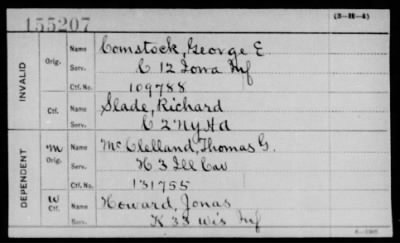 155207
(3-111-4)
INVALID
Orig.
Name Comstock, George E.
Serv. C 12 Iowa Inf
Ctf. No. 109788
Ctf.
Name Slade, Richard
Serv. C 2 NY HA
DEPENDENT
M Orig.
Name McClelland, Thomas G.
Serv. H 3 Ill Cav
Ctf. No. 131755
W Ctf.
Name Howard, Jonas
Serv. K 38 Wis Inf